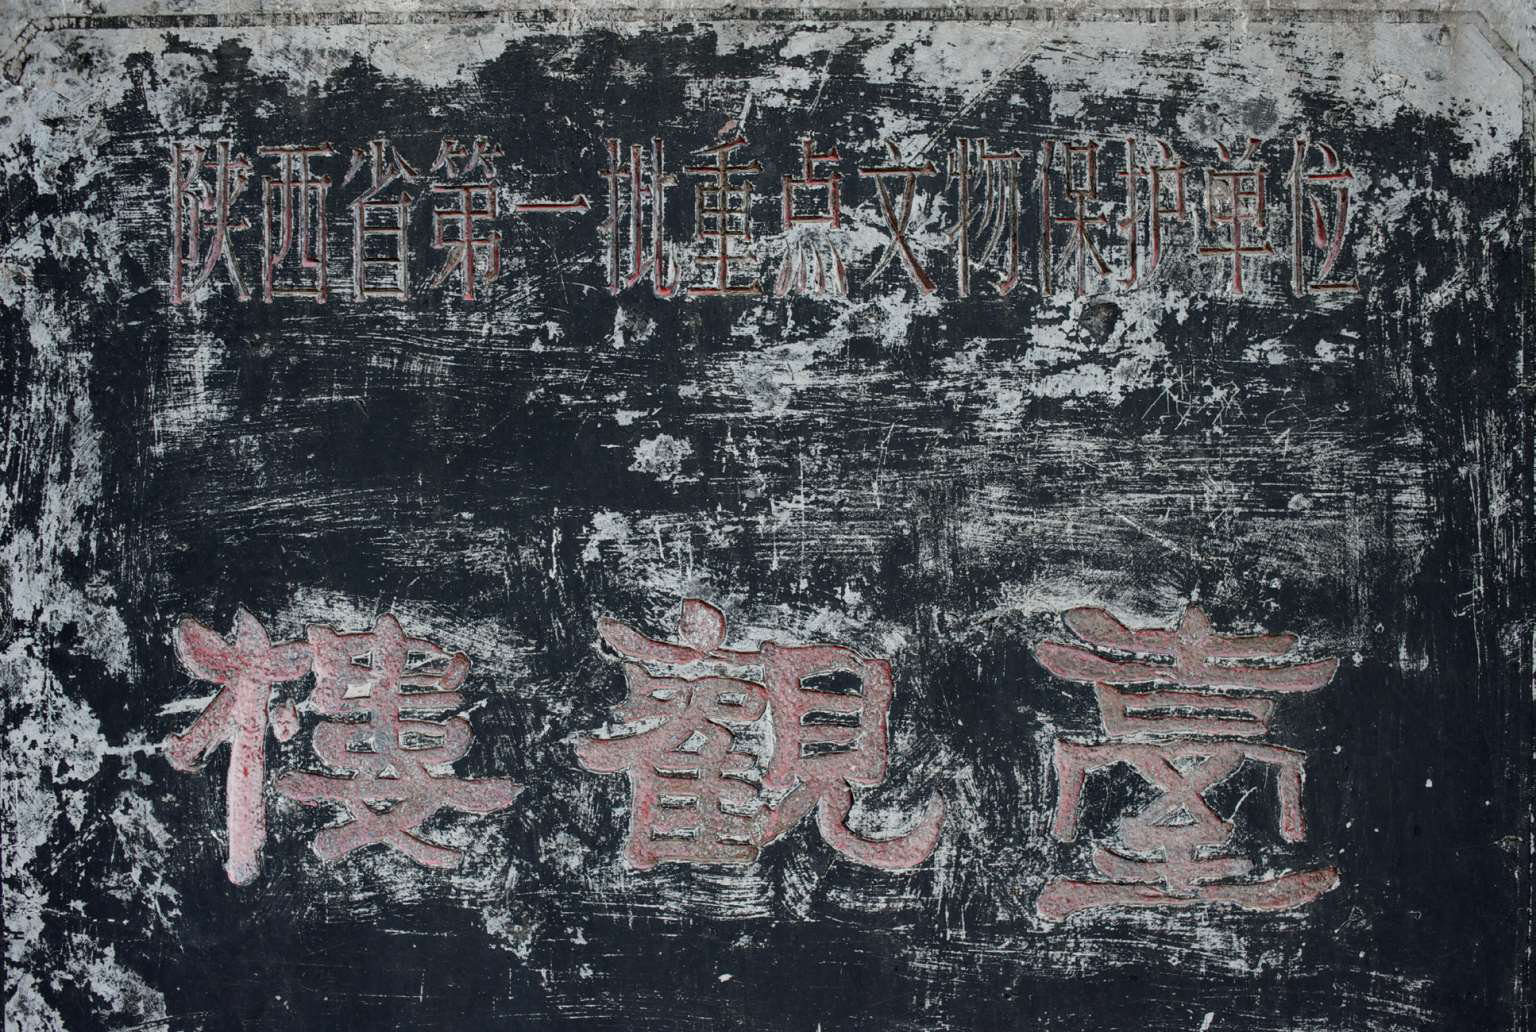 陕西省第一批重点文物保护单位
樓觀臺